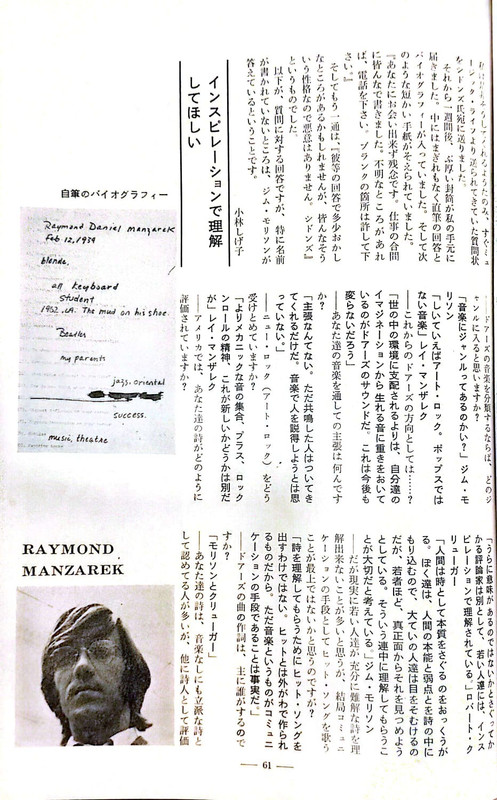 ージック・ライフより送られてきていた質問状
をシドンズ氏宛に送りました。
それから一週間後、ぶ厚い封筒が私の手元に
届きました。中にはまぎれもなく直筆の回答と
バイオグラフィーが入っていました。そして次
のような短かい手紙がそえられていました。
『あなたにお会い出来ず残念です。仕事の合間
に皆んなで書きました。不明なところがあれ
ば、電話を下さい。ブランクの箇所は許して下
さい。』
そしてもう一通は、『彼等の回答で多少おかし
なところがあるかもしれませんが、皆んなそう
いう性格なので悪意はありません。シドンズ』
というものでした。
以下が、質問に対する回答ですが、特に名前
が書かれていないところは、ジム・モリソンが
答えているということです。
小林しげ子
インスピレーションで理解
してほしい
――ドアーズの音楽を分類するならば、どのジ
ャンルに入ると思いますか?
「音楽にジャンルってあるのかい?」ジム・モ
リソン
「しいていえばアート・ロック。ポップスでは
ない音楽」レイ・マンザレク
――これからのドアーズの方向としては……?
「世の中の環境に支配されるよりは、自分達の
イマジネーションから生れる音に重きをおいて
いるのがドアーズのサウンドだ。これは今後も
変らないだろう」
――あなた達の音楽を通しての主張は何んです
か?
「主張なんてない。ただ共鳴した人はついてき
てくれるだけだ。音楽で人を説得しようとは思
っていない。」
――ニュー・ロック(アート・ロック)をどう
受けとめていますか?
「よりメカニックな音の集合、プラス、ロック
ンロールの精神、これが新しいかどうかは別だ
が」レイ・マンザレク
――アメリカでは、あなた達の詩がどのように
評価されていますか?
「うらに意味があるのではないかとさぐってか
かる評論家は別として、若い人達には、インス
ピレーションで理解されている。」ロバート・ク
リューガー
「人間は時として本質をさぐるのをおっくうが
る。ぼく達は、人間の本能と弱点とを詩の中に
もり込むので、大ていの人達は目をそむけるの
だが、若者ほど、真正面からそれを見つめよう
としている。そういう連中に理解してもらうこ
とが大切だと考えている。」ジム・モリソン
――だが現実に若い人達が充分に難解な詩を理
解出来ないことが多いと思うが、結局コミュニ
ケーションの手段としてヒット・ソングを歌う
ことが最上ではないかと思うのですが?
「詩を理解してもらうためにヒット・ソングを
出すわけではない。ヒットとは外がわで作られ
るものだから。ただ音楽というものがコミュニ
ケーションの手段であることは事実だ。」
――ドアーズの曲の作詞は、主に誰がするので
すか?
「モリソンとクリューガー」
――あなた達の詩は、音楽なしにも立派な詩と
して認めてる人が多いが、他に詩人として評価
自筆のバイオグラフィー
Raymond Daniel Manzarek
Feb 12, 1939
blonde.
all keyboard
student
1962, LA. The mud on his shoe.
Beatles
my parents
jazz, oriental
success.
music, theatre
RAYMOND
MANZAREK
― 61 ―